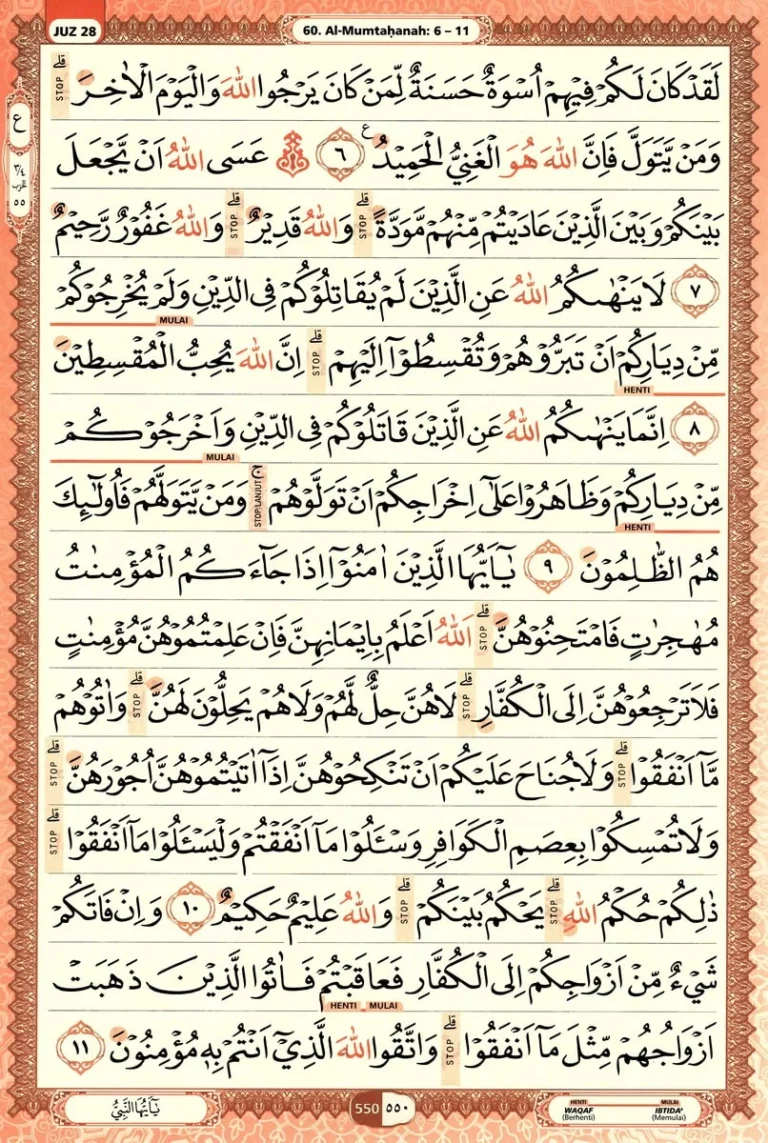 JUZ 28
60. Al-Mumtaḥanah: 6 – 11
ع
٣/٤
الحزب
٥٥
لَقَدْ كَانَ لَكُمْ فِيْهِمْ اُسْوَةٌ حَسَنَةٌ لِّمَنْ كَانَ يَرْجُوا اللّٰهَ وَالْيَوْمَ الْاٰخِرَۗ STOP
وَمَنْ يَّتَوَلَّ فَاِنَّ اللّٰهَ هُوَ الْغَنِيُّ الْحَمِيْدُ ࣖ ٦ ۞ عَسَى اللّٰهُ اَنْ يَّجْعَلَ
بَيْنَكُمْ وَبَيْنَ الَّذِيْنَ عَادَيْتُمْ مِّنْهُمْ مَّوَدَّةًۗ STOP وَاللّٰهُ قَدِيْرٌۗ STOP وَاللّٰهُ غَفُوْرٌ رَّحِيْمٌ
٧ لَا يَنْهٰىكُمُ اللّٰهُ عَنِ الَّذِيْنَ لَمْ يُقَاتِلُوْكُمْ فِى الدِّيْنِ وَلَمْ يُخْرِجُوْكُمْ
MULAI
مِّنْ دِيَارِكُمْ اَنْ تَبَرُّوْهُمْ وَتُقْسِطُوْٓا اِلَيْهِمْۗ STOP اِنَّ اللّٰهَ يُحِبُّ الْمُقْسِطِيْنَ
HENTI
٨ اِنَّمَا يَنْهٰىكُمُ اللّٰهُ عَنِ الَّذِيْنَ قَاتَلُوْكُمْ فِى الدِّيْنِ وَاَخْرَجُوْكُمْ
MULAI
مِّنْ دِيَارِكُمْ وَظَاهَرُوْا عَلٰٓى اِخْرَاجِكُمْ اَنْ تَوَلَّوْهُمْۚ STOP/LANJUT وَمَنْ يَّتَوَلَّهُمْ فَاُولٰۤىِٕكَ
HENTI
هُمُ الظّٰلِمُوْنَ ٩ يٰٓاَيُّهَا الَّذِيْنَ اٰمَنُوْٓا اِذَا جَاۤءَكُمُ الْمُؤْمِنٰتُ
مُهٰجِرٰتٍ فَامْتَحِنُوْهُنَّۗ STOP اَللّٰهُ اَعْلَمُ بِاِيْمَانِهِنَّ فَاِنْ عَلِمْتُمُوْهُنَّ مُؤْمِنٰتٍ
فَلَا تَرْجِعُوْهُنَّ اِلَى الْكُفَّارِۗ STOP لَا هُنَّ حِلٌّ لَّهُمْ وَلَا هُمْ يَحِلُّوْنَ لَهُنَّۗ STOP وَاٰتُوْهُمْ
مَّآ اَنْفَقُوْاۗ STOP وَلَا جُنَاحَ عَلَيْكُمْ اَنْ تَنْكِحُوْهُنَّ اِذَآ اٰتَيْتُمُوْهُنَّ اُجُوْرَهُنَّۗ STOP
وَلَا تُمْسِكُوْا بِعِصَمِ الْكَوَافِرِ وَسْـَٔلُوْا مَآ اَنْفَقْتُمْ وَلْيَسْـَٔلُوْا مَآ اَنْفَقُوْاۗ STOP
ذٰلِكُمْ حُكْمُ اللّٰهِۗ STOP يَحْكُمُ بَيْنَكُمْۗ STOP وَاللّٰهُ عَلِيْمٌ حَكِيْمٌ ١٠ وَاِنْ فَاتَكُمْ
شَيْءٌ مِّنْ اَزْوَاجِكُمْ اِلَى الْكُفَّارِ فَعَاقَبْتُمْ فَاٰتُوا الَّذِيْنَ ذَهَبَتْ
HENTI MULAI
اَزْوَاجُهُمْ مِّثْلَ مَآ اَنْفَقُوْاۗ STOP وَاتَّقُوا اللّٰهَ الَّذِيْٓ اَنْتُمْ بِهٖ مُؤْمِنُوْنَ ١١
يٰٓاَيُّهَا النَّبِيُّ
550 ٥٥٠
HENTI MULAI
WAQAF IBTIDA'
(Berhenti) (Memulai)